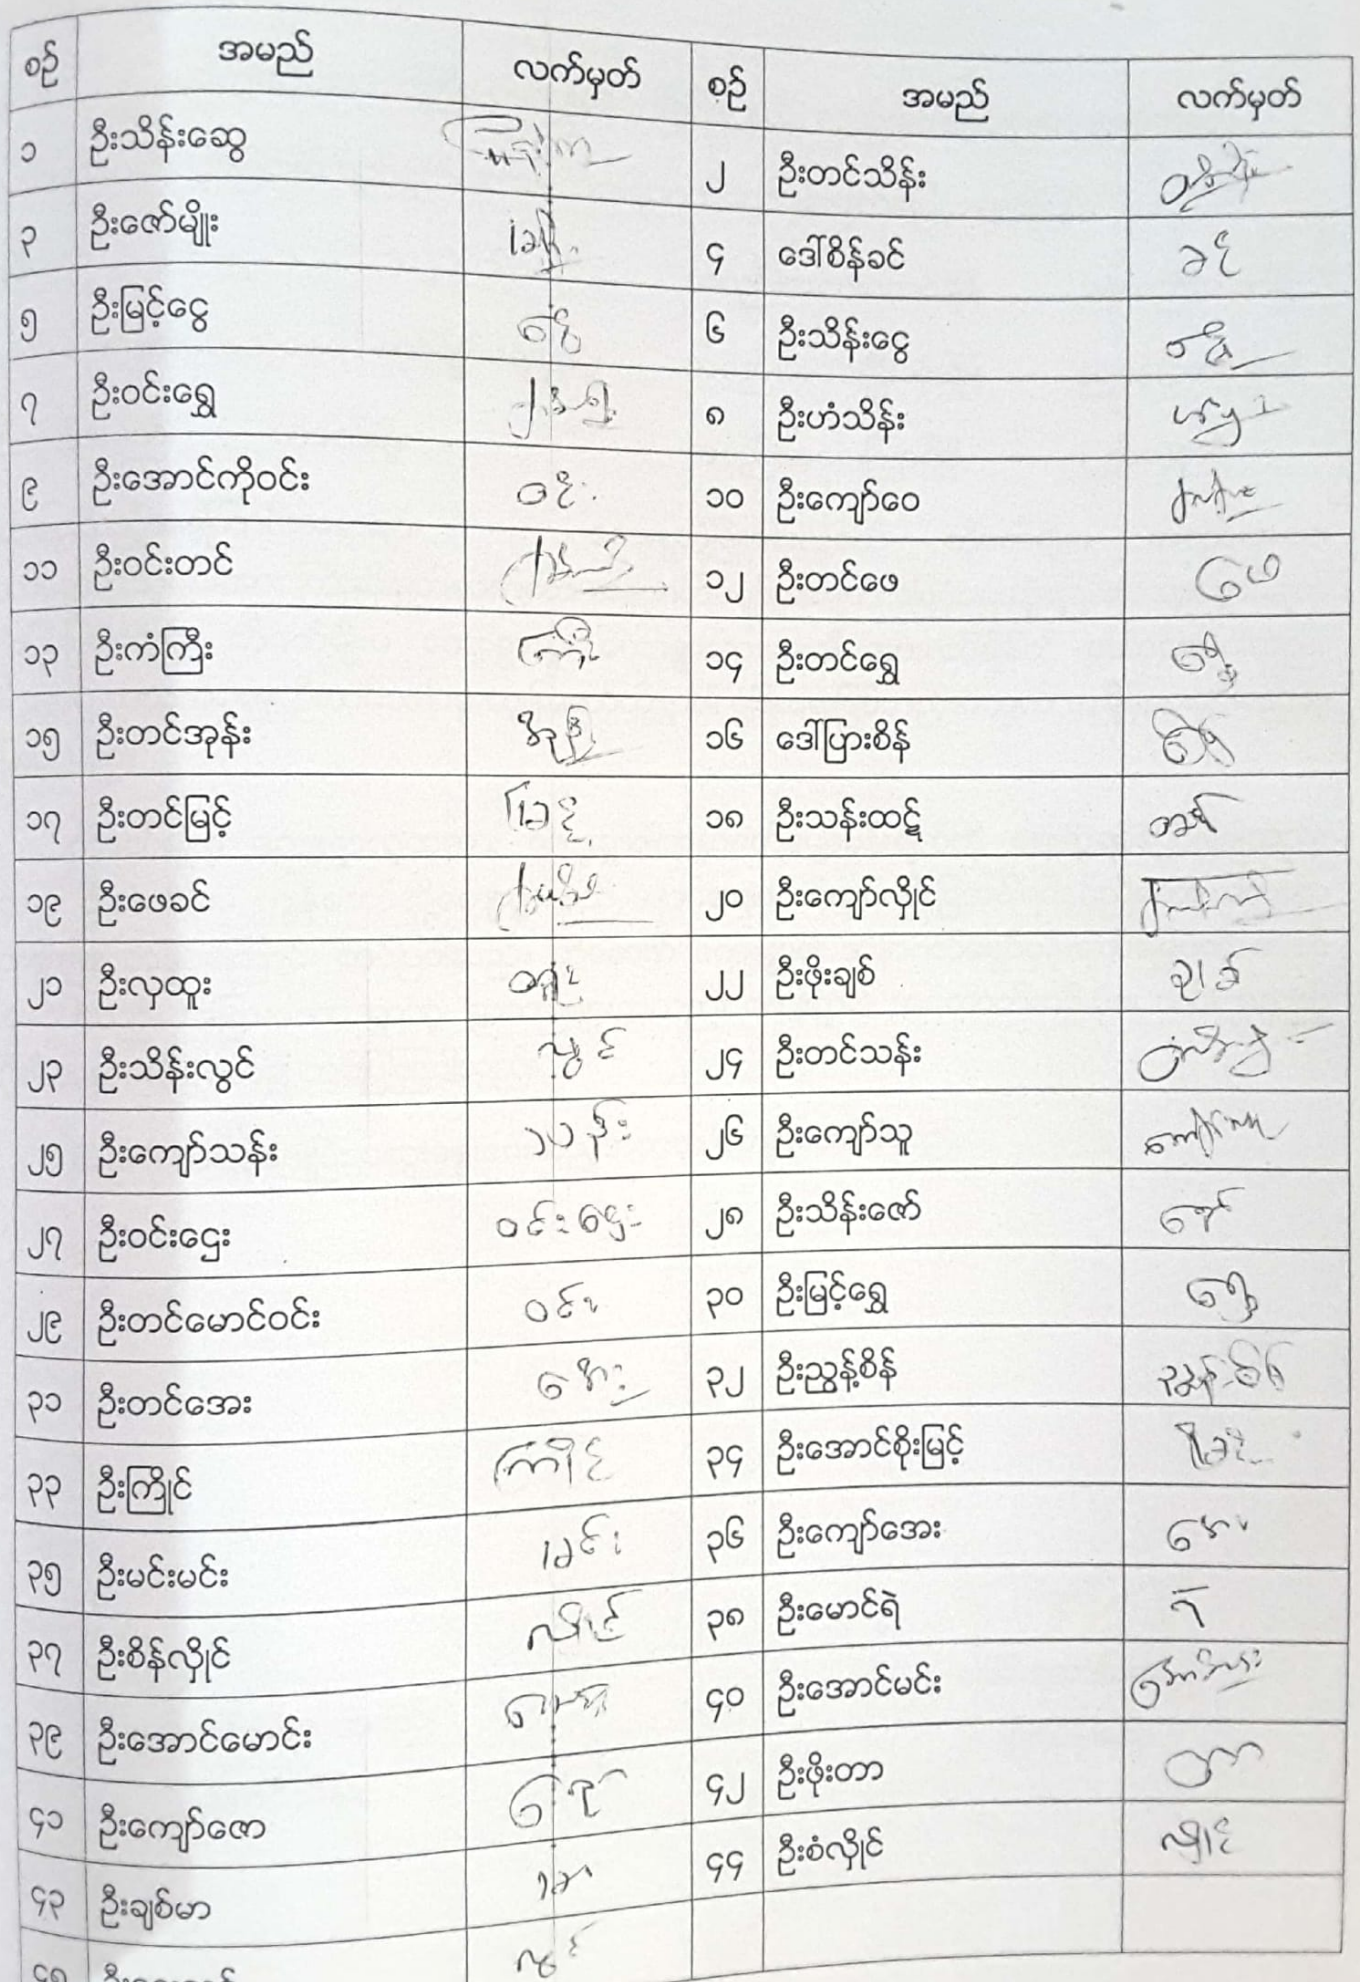 စဉ် အမည် လက်မှတ် စဉ် အမည် လက်မှတ်
၁ ဦးသိန်းဆွေ ၂ ဦးတင်သိန်း
၃ ဦးဇော်မျိုး ၄ ဒေါ်စိန်ခင် ခင်
၅ ဦးမြင့်ငွေ ငွေ ၆ ဦးသိန်းငွေ
၇ ဦးဝင်းရွှေ ၈ ဦးဟံသိန်း
၉ ဦးအောင်ကိုဝင်း ဝင်း ၁၀ ဦးကျော်ဝေ
၁၁ ဦးဝင်းတင် ၁၂ ဦးတင်ဖေ ဖေ
၁၃ ဦးကံကြီး ကြီး ၁၄ ဦးတင်ရွှေ ရွှေ
၁၅ ဦးတင်အုန်း ၁၆ ဒေါ်ပြားစိန်
၁၇ ဦးတင်မြင့် မြင့် ၁၈ ဦးသန်းထဋ်
၁၉ ဦးဖေခင် ၂၀ ဦးကျော်လှိုင်
၂၁ ဦးလှထူး ထူး ၂၂ ဦးဖိုးချစ် ချစ်
၂၃ ဦးသိန်းလွင် လွင် ၂၄ ဦးတင်သန်း
၂၅ ဦးကျော်သန်း သန်း ၂၆ ဦးကျော်သူ ကျော်သူ
၂၇ ဦးဝင်းဌေး ဝင်းဌေး ၂၈ ဦးသိန်းဇော် ဇော်
၂၉ ဦးတင်မောင်ဝင်း ဝင်း ၃၀ ဦးမြင့်ရွှေ ရွှေ
၃၁ ဦးတင်အေး အေး ၃၂ ဦးညွန့်စိန် ညွန့်စိန်
၃၃ ဦးကြိုင် ကြိုင် ၃၄ ဦးအောင်စိုးမြင့် မြင့်
၃၅ ဦးမင်းမင်း မင်း ၃၆ ဦးကျော်အေး အေး
၃၇ ဦးစိန်လှိုင် လှိုင် ၃၈ ဦးမောင်ရဲ ရဲ
၃၉ ဦးအောင်မောင်း ၄၀ ဦးအောင်မင်း
၄၁ ဦးကျော်ဇော ဇော် ၄၂ ဦးဖိုးတာ တာ
၄၃ ဦးချစ်မာ မာ ၄၄ ဦးစံလှိုင် လှိုင်
၄၅ လွင်